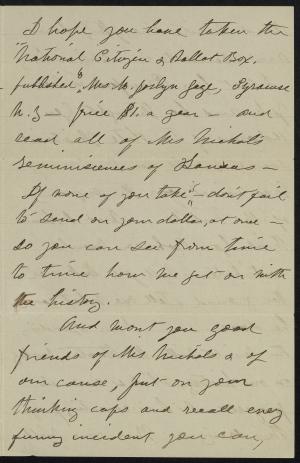 I hope you have taken the
National Citizen & Ballot Box,
published by Mrs M. Joslyn Gage, Syracuse
N.Y — price $1. a year — and
read all of Mrs Nichols
reminisciences of Kansas —
If none of you take it — don't fail
to send on your dollar, at once —
so you can see from time
to time how we get on with
the history.
And wont you good
friends of Mrs Nichols & of
our cause, put on your
thinking caps and recall every
funny incident you can,